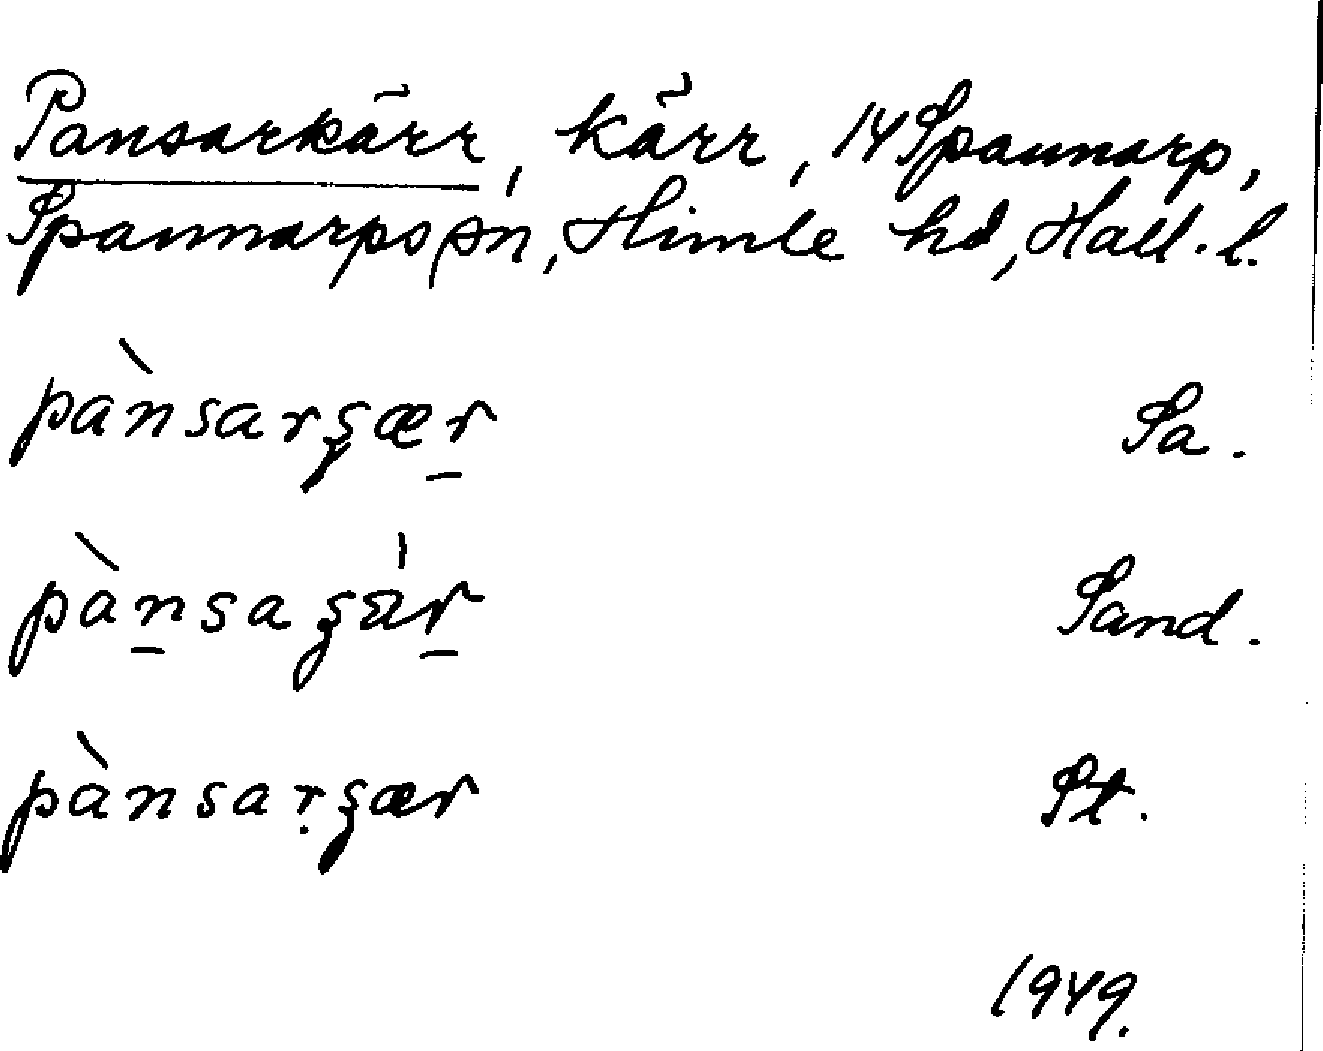 Pansarkärr, kärr, 14 Spannarp,
Spannarps sn, Himle hd, Hall. l.
pànsarʂær̲ Sa.
pàn̲saʂár̲ Sand.
pànsaṛʂær St.
1949.